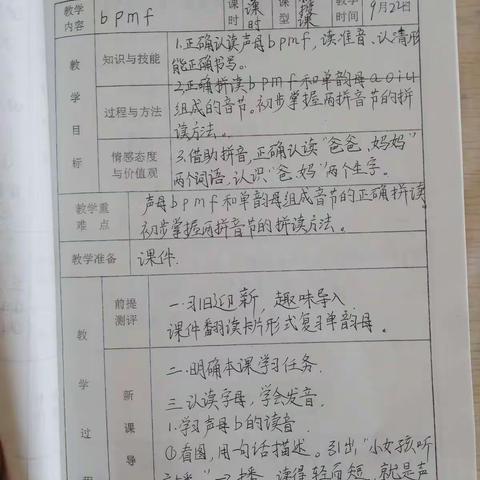 教学内容 b p m f 课时 课时 课型 授课 教学时间 9月22日
教学目标
知识与技能
1.正确认读声母b p m f,读准音、认清形
能正确书写。
过程与方法
2.正确拼读b p m f和单韵母a o i u
组成的音节。初步掌握两拼音节的拼
读方法。
情感态度与价值观
3.借助拼音,正确认读"爸爸、妈妈"
两个词语,认识"爸、妈"两个生字。
教学重难点
声母b p m f和单韵母组成音节的正确拼读
初步掌握两拼音节的拼读方法。
教学准备 课件.
教学过程
前提测评
一.习旧迎新,趣味导入
课件翻读卡片形式复习单韵母。
新课导
二.明确本课学习任务.
三.认读字母,学会发音.
1.学习声母b的读音.
①看图,用一句话描述。引出"小女孩听
"→播 读得轻而短,就是声